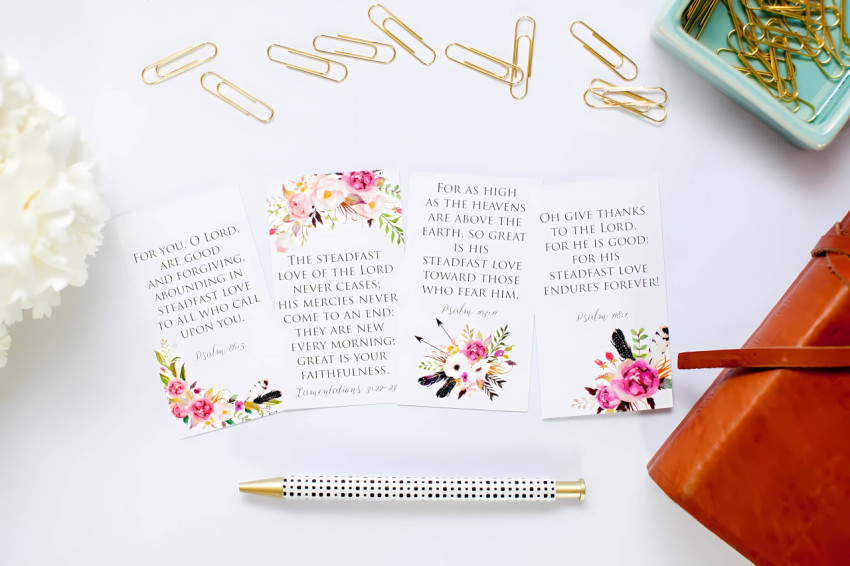 For you, O Lord,
are good
and forgiving,
abounding in
steadfast love
to all who call
upon you.
Psalm 86:5
The steadfast
love of the Lord
never ceases;
his mercies never
come to an end;
they are new
every morning;
great is your
faithfulness.
Lamentations 3:22-23
For as high
as the heavens
are above the
earth, so great
is his
steadfast love
toward those
who fear him.
Psalm 103:11
Oh give thanks
to the Lord,
for he is good;
for his
steadfast love
endures forever!
Psalm 118:1